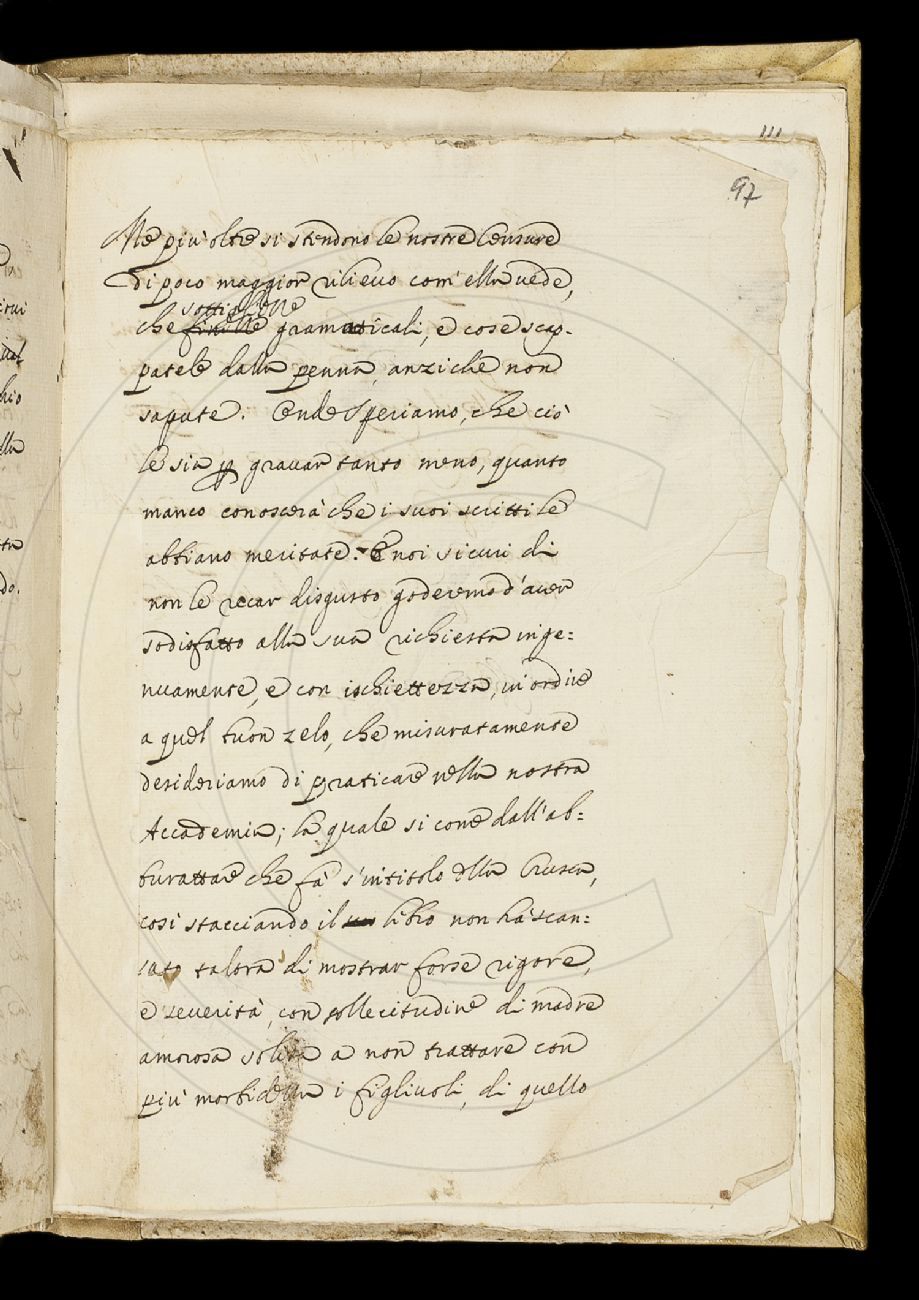 111
97
Ne più oltre si stendono le nostre Censure
di poco maggior rilievo com' ella vede,
sottigliezze
che finezze gramaticali, e cose scap-
patele dalla penna, anzi che non
sapute. Onde speriamo, che ciò
le sia p gravar tanto meno, quanto
manco conoscerà che i suoi scritti le
abbiano meritate. E noi sicuri di
non le recar disgusto goderemo d'aver
sodisfatto alla sua richiesta inge=
nuamente, e con ischiettezza, in ordine
a quel buon zelo, che misuratamente
desideriamo di praticare nella nostra
Accademia; la quale si come dall'ab=
burattare che fa s'intitolo della Crusca,
così stacciando il libro non ha scan=
sato talora di mostrar forse rigore,
e severità, con sollecitudine di madre
amorosa solita a non trattare con
più morbidezza i figliuoli, di quello